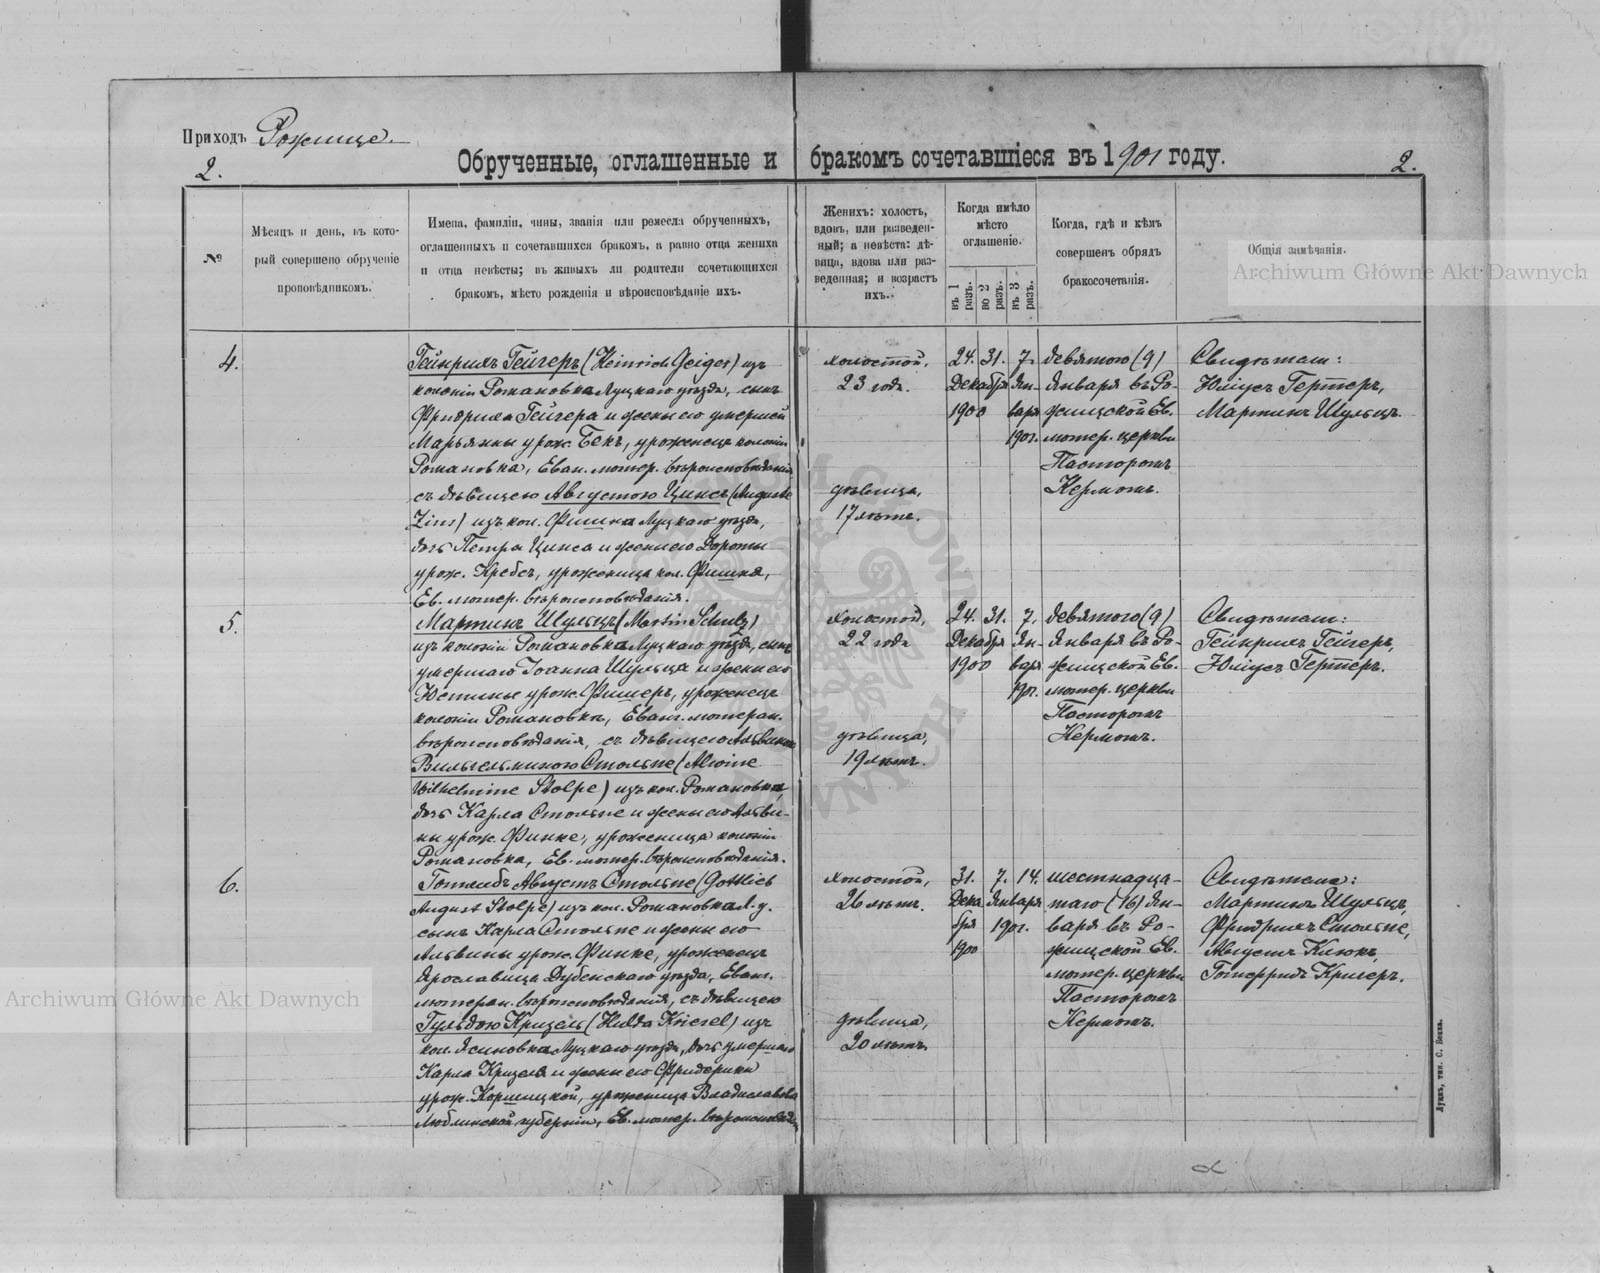 Приходъ Рожище.
2.
Обрученные, оглашенные и бракомъ сочетавшіеся въ 1901 году.
2.
№
Мѣсяцъ и день, въ кото-
рый совершено обрученіе
проповѣдникомъ.
Имена, фамиліи, чины, званія или ремесла обрученныхъ,
оглашенныхъ и сочетавшихся бракомъ, а равно отца жениха
и отца невѣсты; въ живыхъ ли родители сочетающихся
бракомъ, мѣсто рожденія и вѣроисповѣданіе ихъ.
Женихъ: холостъ,
вдовъ, или разведен-
ный; а невѣста: дѣ-
вица, вдова или раз-
веденная; и возрастъ
ихъ.
Когда имѣло
мѣсто
оглашеніе.
въ 1 разъ.
во 2 разъ.
въ 3 разъ.
Когда, гдѣ и кѣмъ
совершенъ обрядъ
бракосочетанія.
Общія замѣчанія.
Archiwum Główne Akt Dawnych
4.
Гейнрихъ Гейгеръ (Heinrich Geiger) изъ
колоніи Романовка Луцкаго уѣзда, сынъ
Фридриха Гейгера и жены его умершей
Марьянны урож. Бекъ, уроженецъ колоніи
Романовка, Еван. лютер. вѣроисповѣданія
съ дѣвицею Августою Цинсъ (Auguste
Zins) изъ кол. Фишка Луцкаго уѣзда,
дочь Петра Цинса и жены его Дороты
урож. Кребсъ, уроженица кол. Фишка,
Ев. лютер. вѣроисповѣданія.
холостой,
23 года.
дѣвица,
17 лѣтъ.
24. 31. 7.
Декабря Ян-
1900 варя
1901.
девятого (9)
Января въ Ро-
жищской Ев.
лютер. церкви
Пасторомъ
Кермомъ.
Свидѣтели:
Юліусъ Гертеръ,
Мартинъ Шульцъ.
5.
Мартинъ Шульцъ (Martin Schulz)
изъ колоніи Романовка Луцкаго уѣзда, сынъ
умершаго Іоанна Шульца и жены его
Юстины урож. Фишеръ, уроженецъ
колоніи Романовки, Еванг. лютеран.
вѣроисповѣданія, съ дѣвицею Альвиною
Вильгельминою Стольпе (Alwine
Wilhelmine Stolpe) изъ кол. Романовка,
дочь Карла Стольпе и жены его Альви-
ны урож. Финке, уроженица колоніи
Романовка, Ев. лютер. вѣроисповѣданія.
холостой,
22 года
дѣвица,
19 лѣтъ.
24. 31. 7.
Декабря Ян-
1900 варя
1901.
девятого (9)
Января въ Ро-
жищской Ев.
лютер. церкви
Пасторомъ
Кермомъ.
Свидѣтели:
Гейнрихъ Гейгеръ,
Юліусъ Гертеръ.
6.
Готлибъ Августъ Стольпе (Gottlieb
August Stolpe) изъ кол. Романовка Л. у.
сынъ Карла Стольпе и жены его
Альвины урож. Финке, уроженецъ
Ярославица Дубенскаго уѣзда, Еванг.
лютеран. вѣроисповѣданія, съ дѣвицею
Гульдою Кризель (Hulda Kriesel) изъ
кол. Ясиновка Луцкаго уѣзда, дочь умершаго
Карла Кризеля и жены его Фридерики
урож. уроженица Владиславова
Люблинской губерніи, Ев. лютер. вѣроисповѣд.
холостой,
26 лѣтъ.
дѣвица,
20 лѣтъ.
31. 7. 14.
Дека Января
бря 1901.
1900
шестнадца-
таго (16) Ян-
варя въ Ро-
жищской Ев.
лютер. церкви
Пасторомъ
Кермомъ.
Свидѣтели:
Мартинъ Шульцъ,
Фридрихъ Стольпе,
Августъ Клюкъ,
Готфридъ Кригеръ.
Archiwum Główne Akt Dawnych
Луцкъ, тип. С. Бекка.